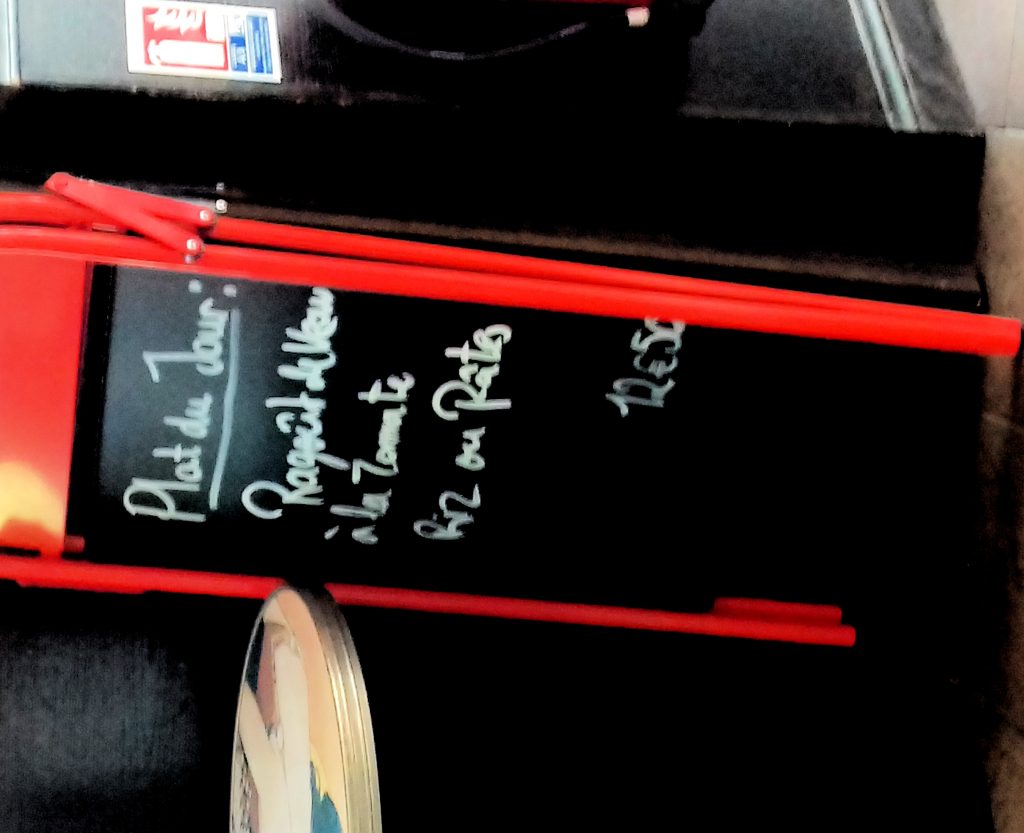 Plat du Jour:
Ragoût de Veau
à la Tomate
Riz ou Pâtes
12€50